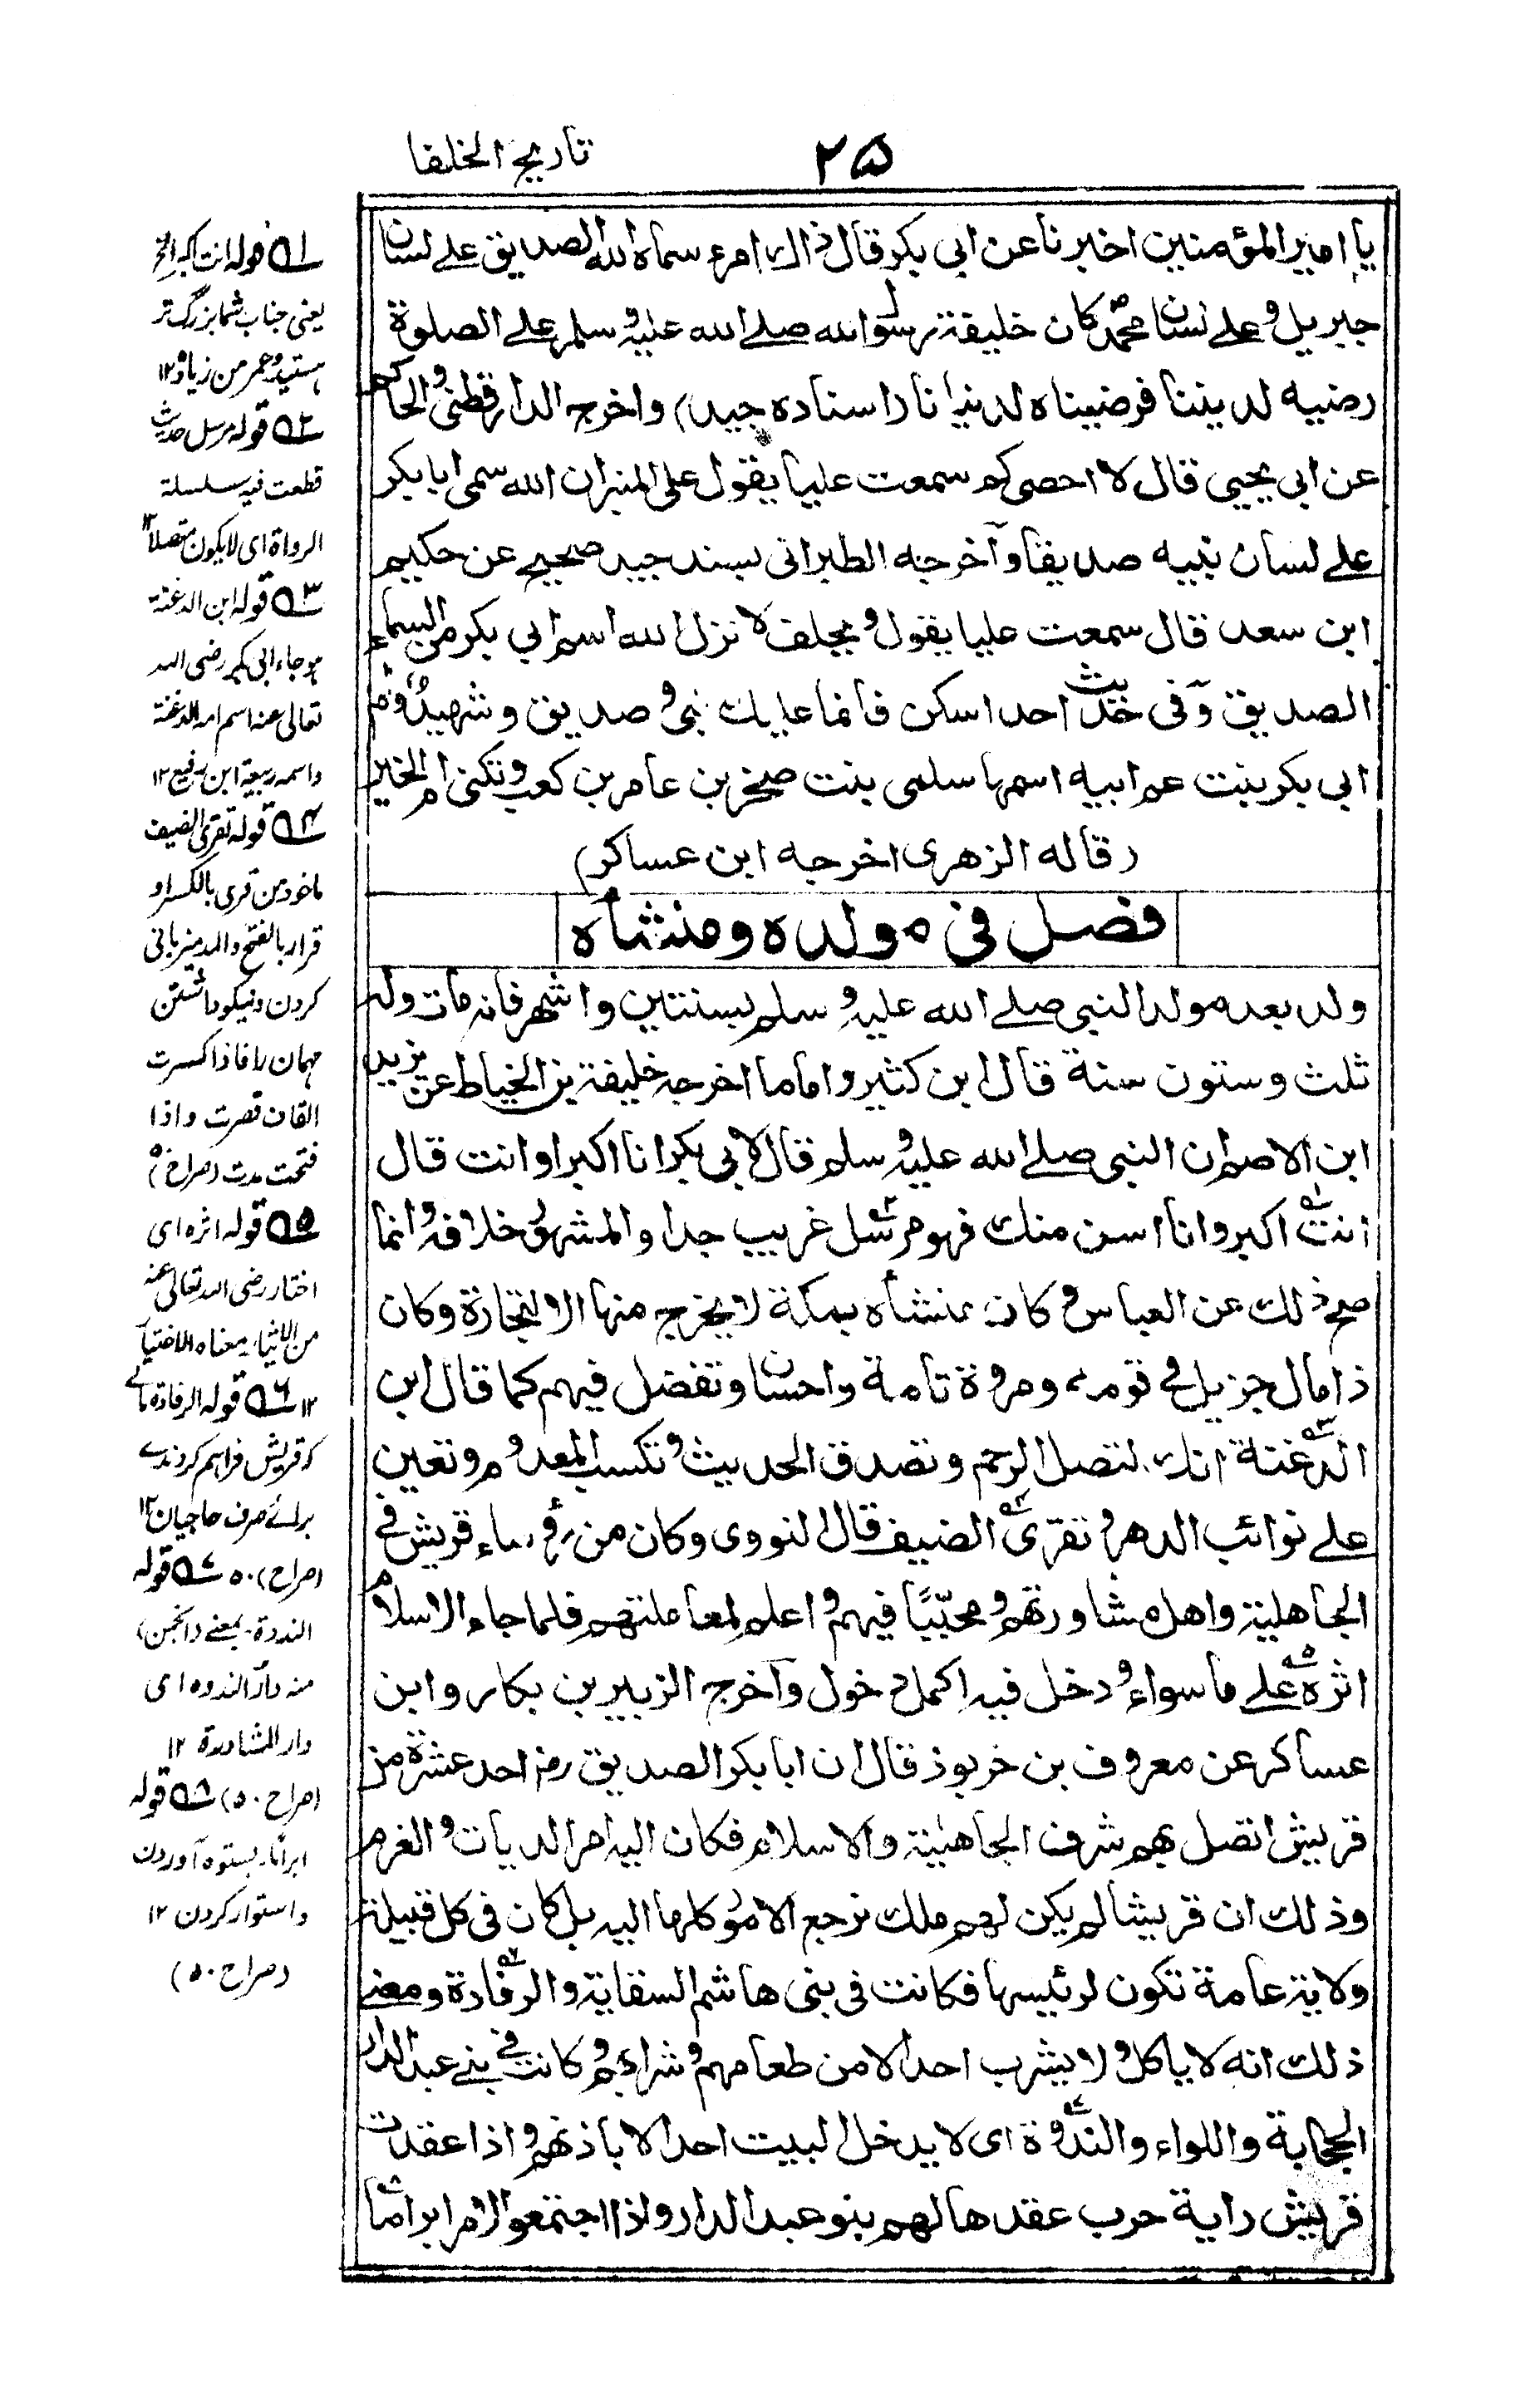 تاريخ الخلفا
۲۵
يا امير المؤمنين اخبرنا عن ابى بكر قال ذاك امرء سماه الله الصديق على لسان
جبريل و على لسان محمد كان خليفة رسول الله صلى الله عليه و سلم على الصلوة
رضيه لديننا فرضيناه لدنيانا (اسناده جيد) واخرج الدارقطنى و الحاكم
عن ابى يحيى قال لا احصى كم سمعت عليا يقول على المنبر ان الله سمى ابا بكر
على لسان نبيه صديقا و آخرجه الطبرانى بسند جيد صحيح عن حكيم
ابن سعد قال سمعت عليا يقول و يحلف لا نزل الله اسم ابى بكر من السماء
الصديق وفى حديث احد اسكن فانما عليك نبى و صديق و شهيدان و ام
ابى بكر بنت عم ابيه اسمها سلمى بنت صخر بن عامر بن كعب و تكنى ام الخير
(قاله الزهرى اخرجه ابن عساكر)
فصل فى مولده و منشأه
ولد بعد مولد النبى صلى الله عليه و سلم بسنتين و اشهر فانه مات وله
ثلث وستون سنة قال ابن كثير و اما ما اخرجه خليفة بن الخياط عن يزيد
ابن الاصم ان النبى صلى الله عليه و سلم قال لابى بكر انا اكبر او انت قال
انت اكبر و انا اسن منك فهو مرسل غريب جدا و المشهور خلافه و انما
صح ذلك عن العباس و كان منشأه بمكة لا يخرج منها الا لتجارة و كان
ذا مال جزيل فى قومه و مروة تامة و احسان و تفضل فيهم كما قال ابن
الدغنة انك لتصل الرحم و تصدق الحديث و تكسب المعدوم و تعين
على نوائب الدهر و تقرى الضيف قال النووى وكان من رؤساء قريش فى
الجاهلية و اهل مشاورتهم و محببا فيهم و اعلم لمعاملتهم فلما جاء الاسلام
اثره على ما سواء و دخل فيه اكمل دخول و آخرج الزبير بن بكار و ابن
عساكر عن معروف بن خربوذ قال ان ابا بكر الصديق رضـ احد عشرة من
قريش اتصل بهم شرف الجاهلية و الاسلام فكان اليه امر الديات و الغرم
وذلك ان قريشا لم يكن لهم ملك ترجع الامور كلها اليه بل كان فى كل قبيلة
ولاية عامة تكون لرئيسها فكانت فى بنى هاشم السقاية و الرفادة و معنى
ذلك انه لا ياكل و لا يشرب احد الا من طعامهم و شرابهم و كانت فى بنى عبد الدار
الحجابة و اللواء و الندوة اى لا يدخل لبيت احد الا باذنهم و اذا عقدت
قريش راية حرب عقدها لهم بنو عبد الدار و اذا اجتمعوا لامر ابراما
۱ قوله انت اكبر الخ
يعنى جناب شما بزرگ تر
ہستيد و عمر من زياده ۱۲
۲ قوله مرسل حديث
قطعت فيه سلسلة
الرواة اى لا يكون متصلا ۱۲
۳ قوله ابن الدغنة
ہو جاء ابى بكر رضى الله
تعالى عنه اسم امه الدغنة
واسمه ربيعة ابن رفيع ۱۲
۴ قوله تقرى الضيف
ماخوذ من قرى بالكسر او
قرار بالفتح والمد ميزبانى
كردن و نيكو داشتن
مہمان را فاذا كسرت
القاف قصرت واذا
فتحت مدت (صراح ۵۰)
۵ قوله اثره اى
اختار رضى الله تعالى عنه
من الايثار معناه الاختيار
۱۲ ۶ قوله الرفادة مالے
كه قريش فراہم كردندے
برائے صرف حاجيان ۱۲
(صراح) ۵۰ ۷ قوله
الندوة بمعنے (انجمن)
منه دار الندوه اى
دار المشاورة ۱۲
(صراح ۵۰) ۸ قوله
ابراما بستوه آوردن
واستوار كردن ۱۲
(صراح ۵۰)